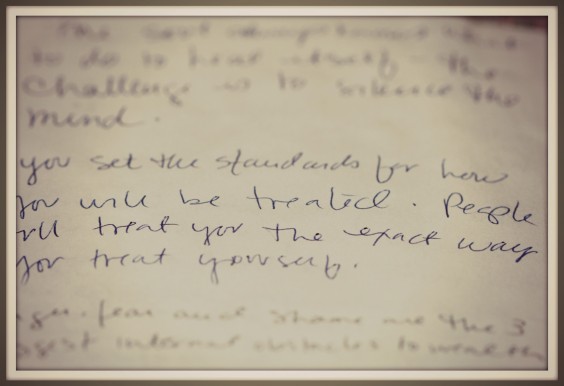 to do is heal itself - the
challenge is to silence the
mind.
you set the standards for how
you will be treated. People
will treat you the exact way
you treat yourself.
fear and shame are the 3
internal obstacles to wealth